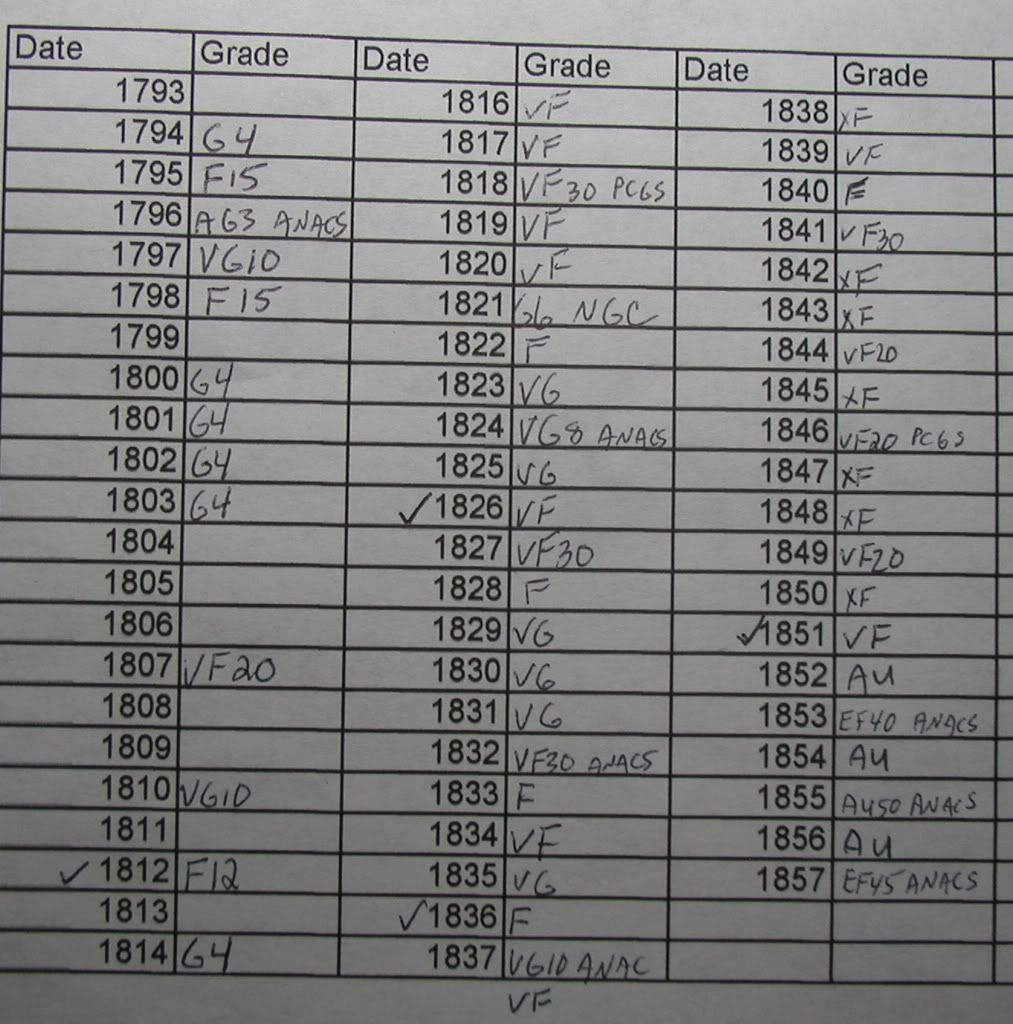 Date Grade Date Grade Date Grade
1793 1816 VF 1838 XF
1794 G4 1817 VF 1839 VF
1795 F15 1818 VF30 PCGS 1840 F
1796 AG3 ANACS 1819 VF 1841 VF30
1797 VG10 1820 VF 1842 XF
1798 F15 1821 G6 NGC 1843 XF
1799 1822 F 1844 VF20
1800 G4 1823 VG 1845 XF
1801 G4 1824 VG8 ANACS 1846 VF20 PCGS
1802 G4 1825 VG 1847 XF
1803 G4 ✓ 1826 VF 1848 XF
1804 1827 VF30 1849 VF20
1805 1828 F 1850 XF
1806 1829 VG ✓ 1851 VF
1807 VF20 1830 VG 1852 AU
1808 1831 VG 1853 EF40 ANACS
1809 1832 VF30 ANACS 1854 AU
1810 VG10 1833 F 1855 AU50 ANACS
1811 1834 VF 1856 AU
✓ 1812 F12 1835 VG 1857 EF45 ANACS
1813 ✓ 1836 F
1814 G4 1837 VG10 ANAC
VF